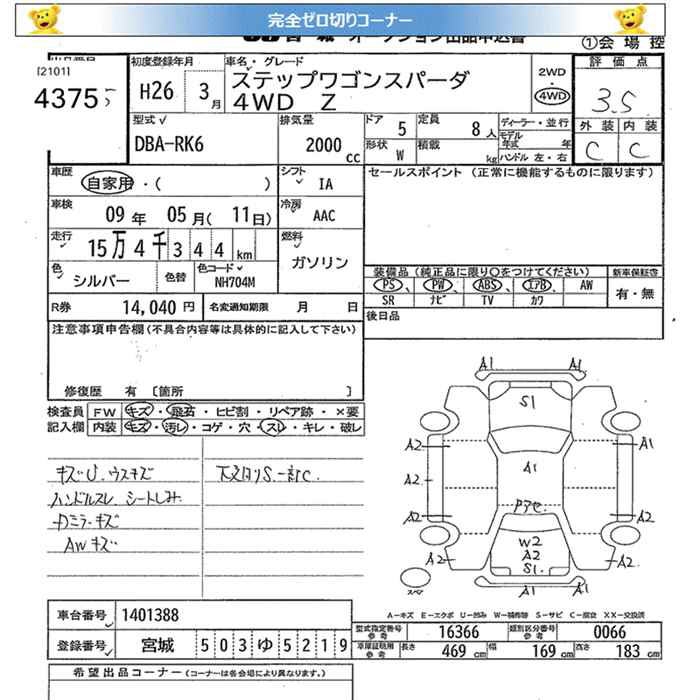 完全ゼロ切りコーナー
①会 場 控
[2101]
4375
初度登録年月
H26 3月
車名・グレード
ステップワゴンスパーダ
4WD Z
2WD
・
4WD
評 価 点
3.5
外 装 内 装
C C
型式
DBA-RK6
排気量
2000 cc
ドア 5
定員 8人
形状 W
積載 kg
ディーラー・並行
モデル年式 年
ハンドル 左・右
車歴
自家用・( )
シフト IA
車検
09年 05月(11日)
冷房 AAC
走行
15万4千344km
燃料
ガソリン
色 シルバー
色替
色コード NH704M
R券 14,040円
名変通知期限 月 日
セールスポイント (正常に機能するものに限ります)
装備品 (純正品に限り○をつけてください)
新車保証書
PS、PW、ABS、エアB、AW
SR ナビ TV カワ
有・無
後日品
注意事項申告欄(不具合内容等は具体的に記入して下さい)
修復歴 有 [箇所 ]
検査員記入欄
FW キズ・飛石・ヒビ割・リペア跡・×要
内装 キズ・汚レ・コゲ・穴・スレ・キレ・破レ
キズU.ウスキズ
ハンドルスレ シートしみ
AWキズ
A1 A1
S1
A2 A1
A2 A1
Pアセ
A2 A1
W2
A2 A2
A2
S1
A1 A1
スペア
A-キズ E-エクボ U-凹み W-補修跡 S-サビ C-腐食 XX-交換済
車台番号 1401388
登録番号 宮城 503 ゆ 5219
型式指定番号 参考 16366
類別区分番号 参考 0066
車庫証明用 参考 長さ 469cm 幅 169cm 高さ 183cm
希望出品コーナー (コーナーは各会場により異なります。)